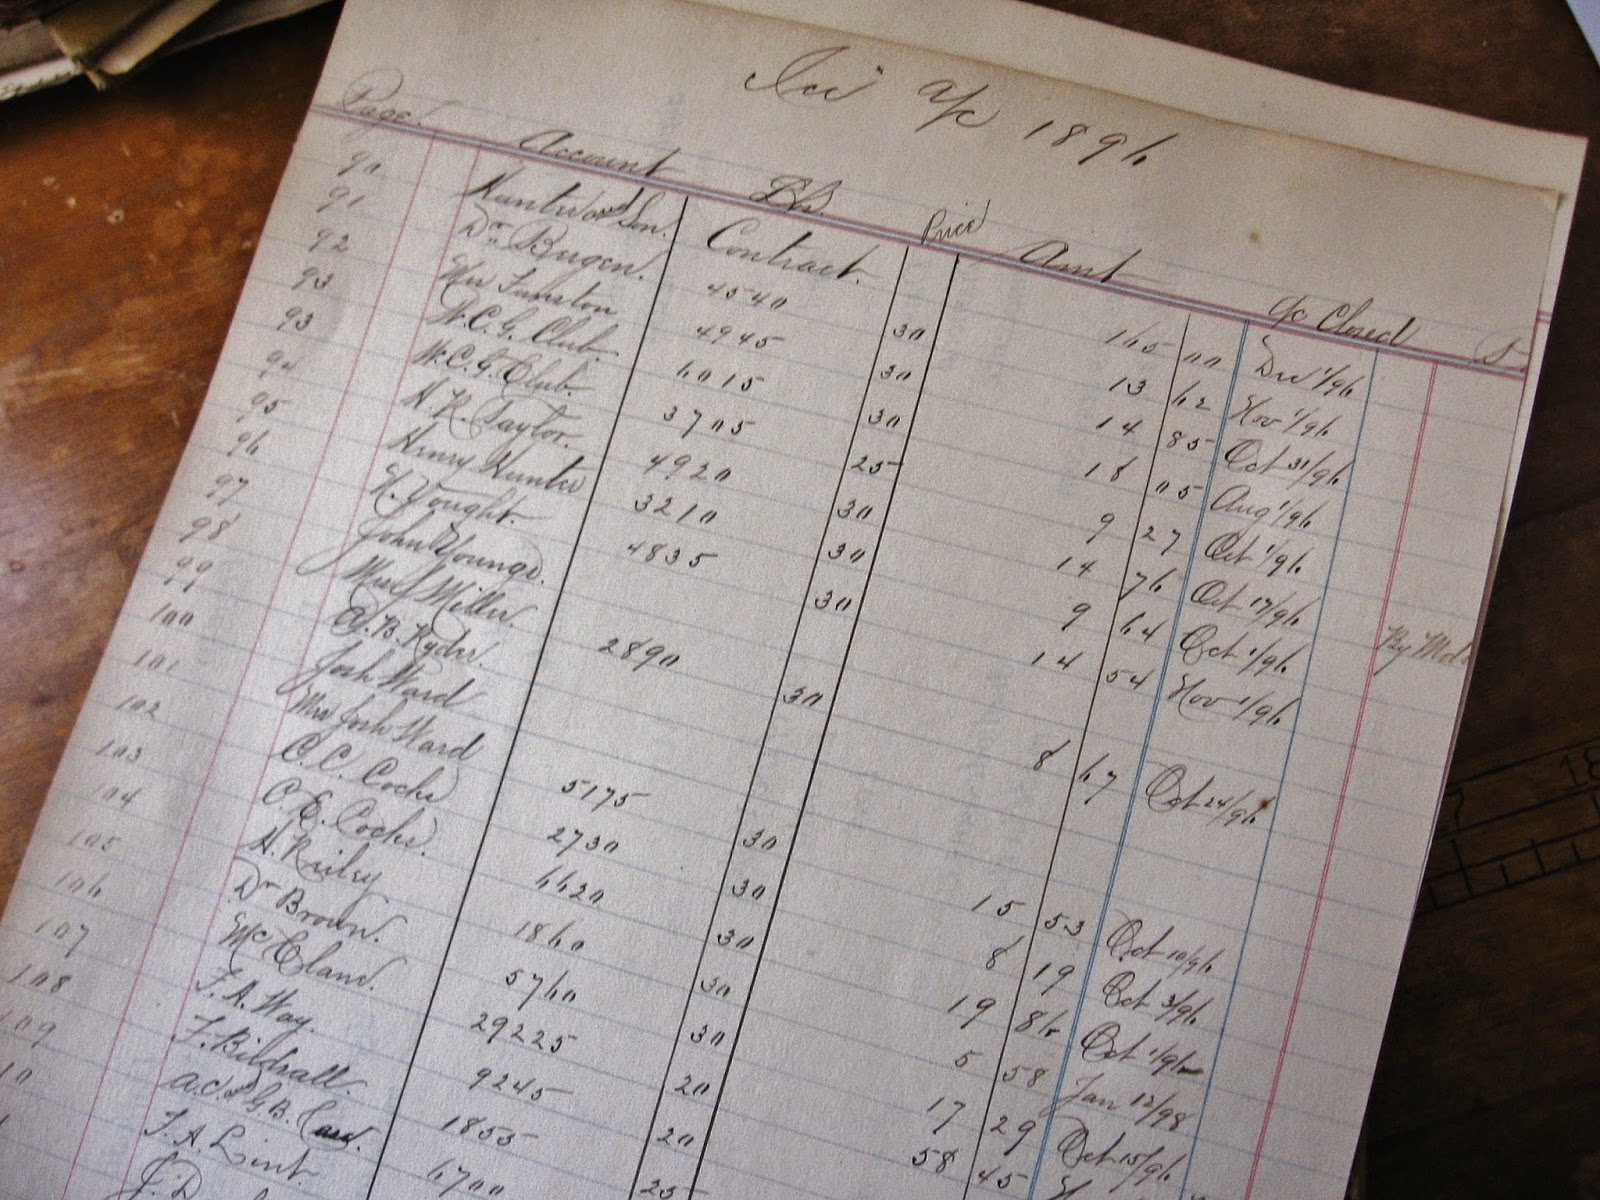 Ice a/c 1896
Page. Account Lbs. Price Amt a/c Closed
90 Hunter and Son. Contract. 165 00 Dec 1/96
91 Dr. Bergen. 4540 30 13 62 Nov 1/96
92 Mrs Funston 4945 30 14 85 Oct 31/96
93 W.C.G. Club. 6015 30 18 05 Aug 1/96
93 W.C.G. Club. 3705 25 9 27 Oct 1/96
94 H.R. Taylor. 4920 30 14 76 Oct 17/96
95 Henry Hunter 3210 30 9 64 Oct 1/96 By
96 H. Vought. 4835 30 14 54 Nov 1/96
97 John Youngs.
98 Miller 2890 30 8 67 Oct 24/96
99 Ryder.
100 Josh Ward
101 Mrs Josh Ward 5175 30 15 53 Oct 10/96
102 C.C. Cocks 2730 30 8 19 Oct 3/96
103 C.E. Cocks. 6620 30 19 86 Oct 1/96
104 A. Riley 1860 30 5 58 Jan 12/98
105 Dr Brown. 5760 30 17 29 Oct 15/96
106 29225 20 58 45
107 F.A. Way. 9245 20
108 F. Birdsall. 1855 25
109 6700
10 F.A. Lint.